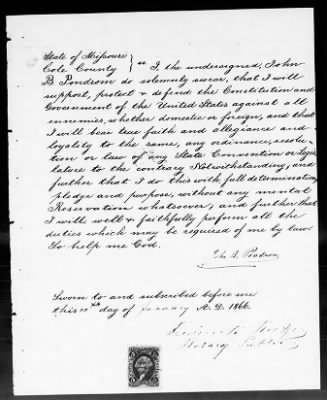 State of Missouri
Cole County } ss I, the undersigned, John
B. Pondrom do solemnly swear, that I will
support, protect & defend the Constitution and
Government of the United States against all
ennemies, whether domestic or foreign, and that
I will bear true faith and allegiance and
loyality to the same, any ordinance, resolu-
tion or law of any State Convention or Legis
lature to the contrary Notwithstanding, and
further that I do this with full determination,
pledge and purpose, without any mental
Reservation whatsoever, and further that
I will well & faithfully perform all the
duties which may be required of me by law
So help me God.
Jno B. Pondrom
Sworn to and subscribed before me
this 10th day of January A.D. 1866.
Notary Public